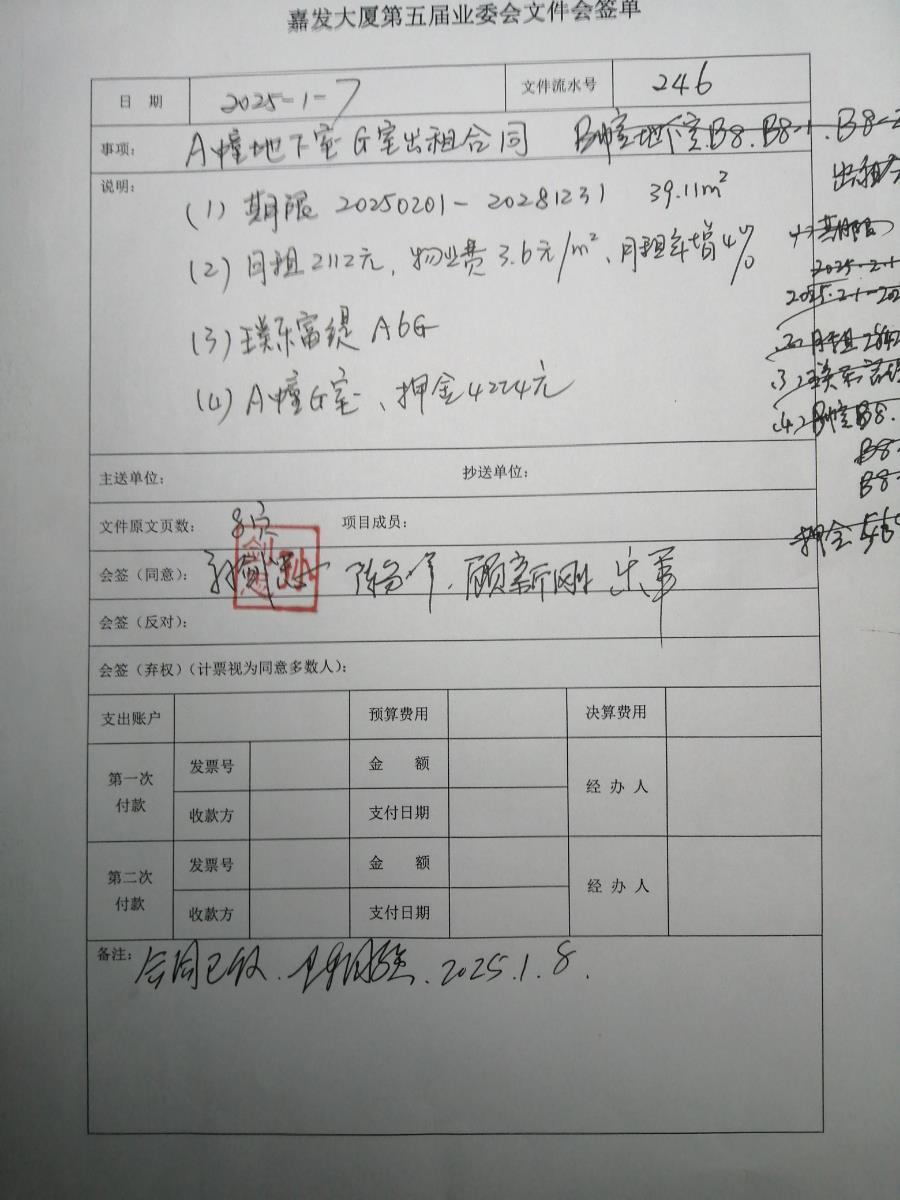 嘉发大厦第五届业委会文件会签单
日 期 2025-1-7 文件流水号 246
事项: A幢地下室G室出租合同 B幢地下室.B8.B8-1.B8-2
出租合
说明:
(1) 期限 20250201-20281231 39.11m²
(2) 月租2112元、物业费3.6元/m²、月租年增4%
(3) 璞东富缇 A6G
(4) A幢G室、押金4224元
期限
2025.2.1
2025.2.1-202
月租
(4) B幢B8.
B8-
B8-
押金
主送单位: 抄送单位:
文件原文页数: 项目成员:
会签(同意): 顾新刚
会签(反对):
会签(弃权)(计票视为同意多数人):
支出账户 预算费用 决算费用
第一次付款 发票号 金 额 经 办 人
收款方 支付日期
第二次付款 发票号 金 额 经 办 人
收款方 支付日期
备注: 合同已收. 2025.1.8.